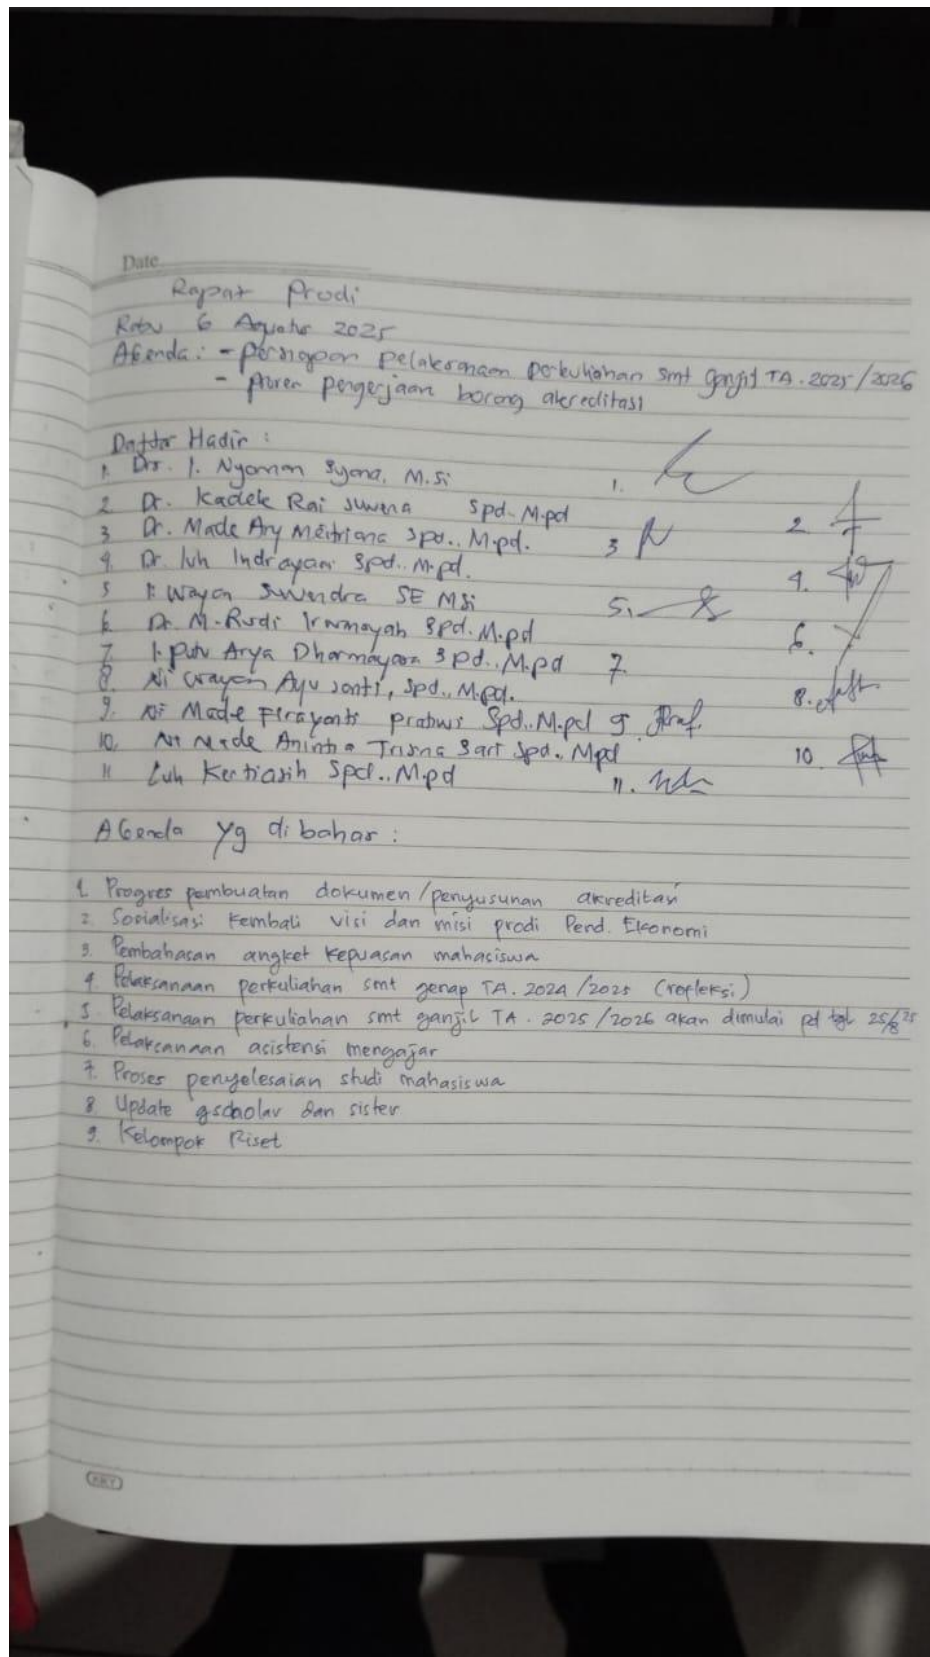 Date
Rapat Prodi
Rabu 6 Agustus 2025
AGenda : - persiapan pelaksanaan perkuliahan smt ganjil TA. 2025/2026
- pengerjaan borang akreditasi
Daftar Hadir :
1. Drs. I. Nyoman Syona, M.Si 1.
2 Dr. Kadek Rai Suwena Spd. M.pd 2
3 Dr. Made Ary Meitriana Spd., M.pd. 3
4. Dr. luh Indrayani Spd., M.pd. 4.
5 I. Wayan Suwendra SE MSi 5.
6 Dr. M. Rudi Irwansyah Spd. M.pd 6.
7 I. Putu Arya Dharmayasa Spd., M.pd 7.
8. Ni Wayan Ayu Santi, Spd., M.pd. 8.
9. Ni Made Pratiwi Spd., M.pd 9.
10. Ni Made Trisna Sari Spd., Mpd 10.
11 Luh Kertiasih Spd., M.pd 11.
AGenda yg di bahas :
1. Progres pembuatan dokumen/penyusunan akreditasi
2. Sosialisasi kembali visi dan misi prodi Pend. Ekonomi
3. Pembahasan angket kepuasan mahasiswa
4 Pelaksanaan perkuliahan smt genap TA. 2024/2025 (refleksi)
5. Pelaksanaan perkuliahan smt ganjil TA. 2025/2026 akan dimulai pd tgl 25/8 25
6. Pelaksanaan asistensi mengajar
7. Proses penyelesaian studi mahasiswa
8 Update gscholar dan sister
9. Kelompok Riset
KKY